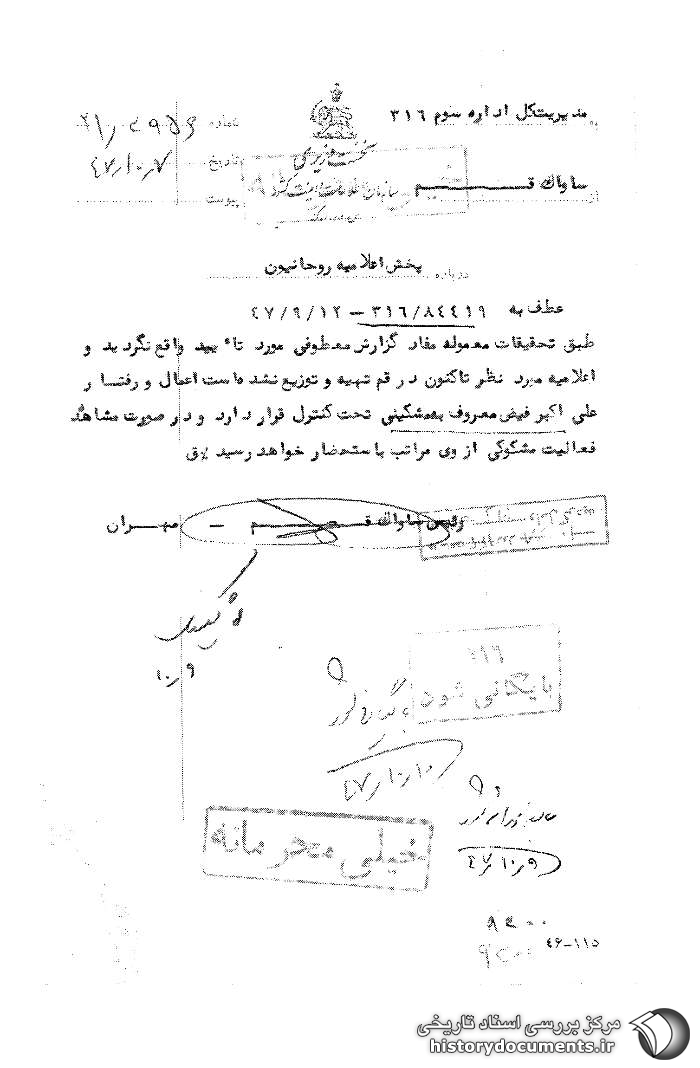 به مدیریت کل اداره سوم ۳۱۶
از ساواک قم
نخست وزیری
سازمان اطلاعات و امنیت کشور
شماره
تاریخ ۴۷/۱۰/۷
پیوست
درباره پخش اعلامیه روحانیون
عطف به ۳۱۶/۸۴۴۱۹ – ۴۷/۹/۱۲
طبق تحقیقات معموله مفاد گزارش معطوفی مورد تائید واقع نگردید و
اعلامیه مورد نظر تاکنون در قم تهیه و توزیع نشده است اعمال و رفتار
علی اکبر فیض معروف به مشکینی تحت کنترل قرار دارد و در صورت مشاهده
فعالیت مشکوکی از وی مراتب باستحضار خواهد رسید
رئیس ساواک قم – مهران
۱۰/۹
۳۱۶
بایگانی شود
۴۷/۱۰/۱۰
خیلی محرمانه
۴۷/۱۰/۹
۴۶-۱۱۵
مرکز بررسی اسناد تاریخی
historydocuments.ir